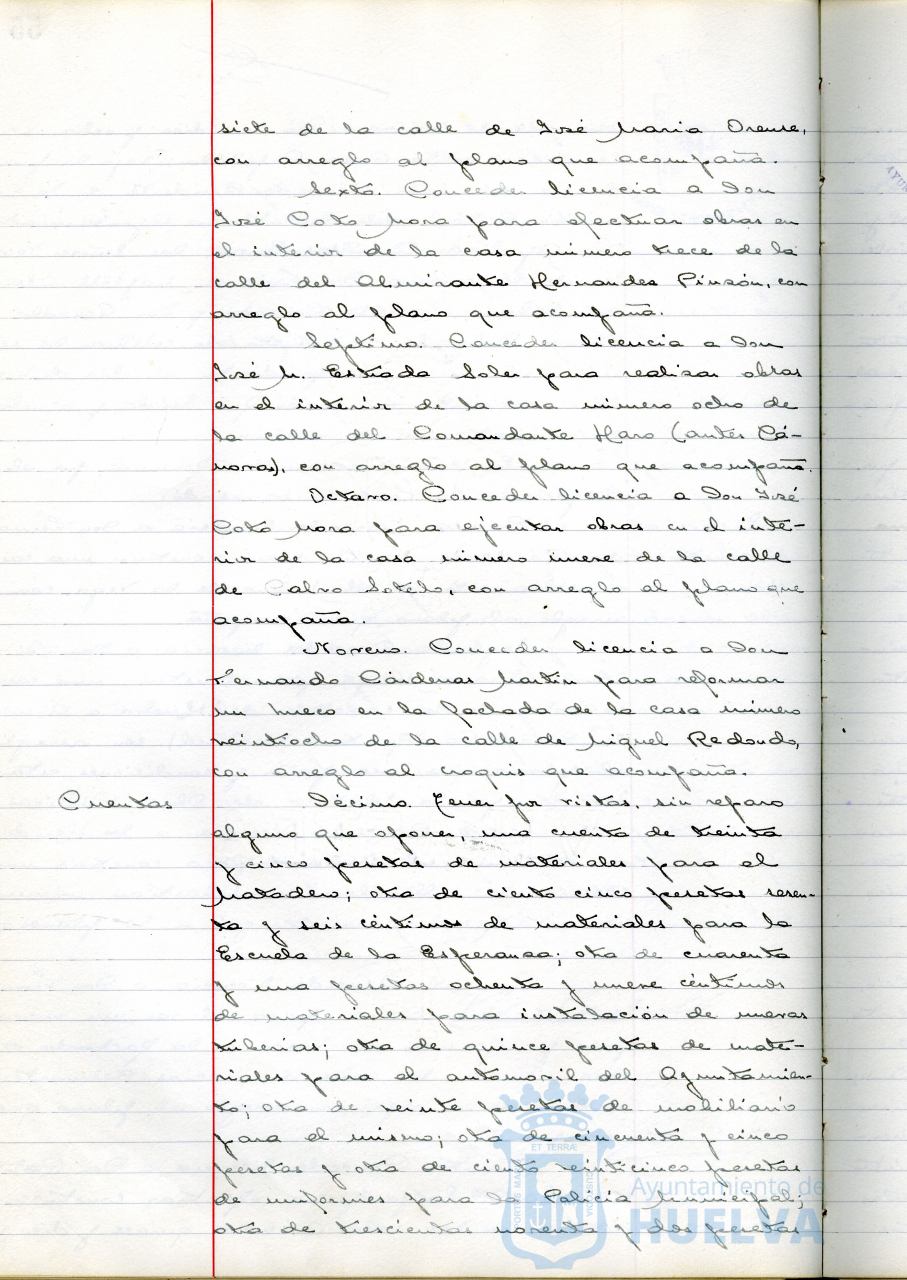 siete de la calle de José María Orense,
con arreglo al plano que acompaña.
Sexto. Conceder licencia a Don
José Coto Mora para efectuar obras en
el interior de la casa número trece de la
calle del Almirante Hernandez Pinzón, con
arreglo al plano que acompaña.
Septimo. Conceder licencia a Don
José M. Estrada Soler para realizar obras
en el interior de la casa número ocho de
la calle del Comandante Haro (antes Cá-
novas), con arreglo al plano que acompaña.
Octavo. Conceder licencia a Don José
Coto Mora para ejecutar obras en el inte-
rior de la casa número nueve de la calle
de Calvo Sotelo, con arreglo al plano que
acompaña.
Noveno. Conceder licencia a Don
Fernando Cárdenas Martín para reformar
un hueco en la fachada de la casa número
veintiocho de la calle de Miguel Redondo,
con arreglo al croquis que acompaña.
Cuentas
Décimo. Tener por vistas, sin reparo
alguno que oponer, una cuenta de treinta
y cinco pesetas de materiales para el
Matadero; otra de ciento cinco pesetas sesen-
ta y seis céntimos de materiales para la
Escuela de la Esperanza; otra de cuarenta
y una pesetas ochenta y nueve céntimos
de materiales para instalación de nuevas
tuberías; otra de quince pesetas de mate-
riales para el automovil del Ayuntamien-
to; otra de veinte pesetas de mobiliario
para el mismo; otra de cincuenta y cinco
pesetas y otra de ciento veinticinco pesetas
de uniformes para la Policía Municipal;
otra de trescientas noventa y dos pesetas
Ayuntamiento de
HUELVA